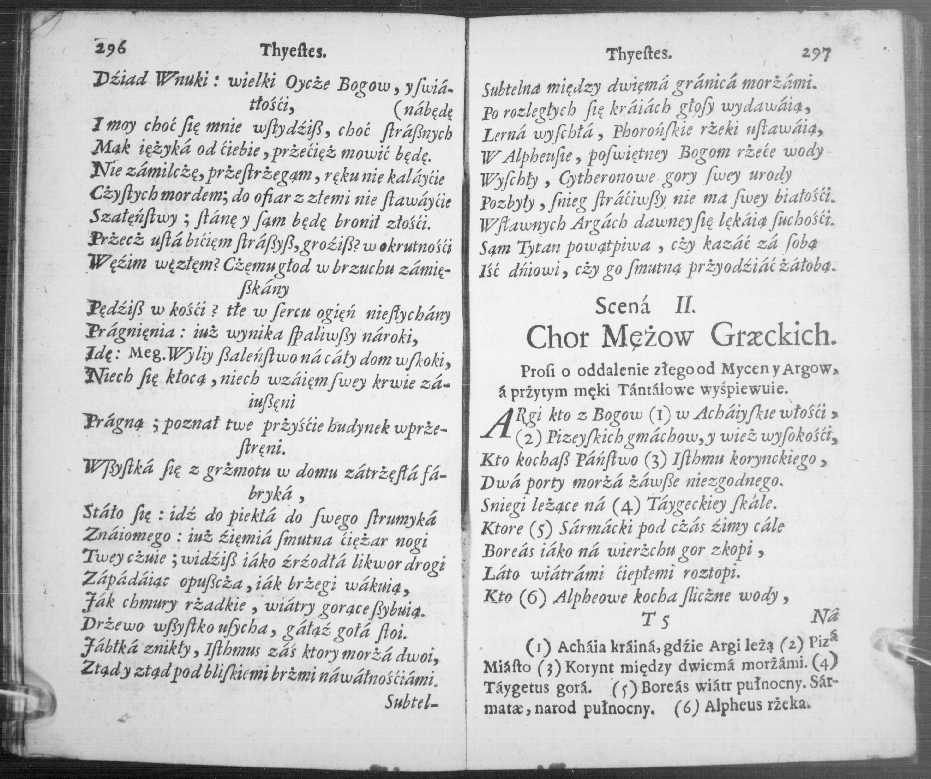 296 Thyeſtes.
Dźiad Wnuki: wielki Oycże Bogow, y ſwiá-
tłośći, (nábędę
I moy choć ſię mnie wſtydźiß, choć ſtráßnych
Mąk ięzyká od ćiebie, przećięż mowić będę.
Nie zámilczę, przeſtrzegąm, ręku nie kaláyćie
Cżyſtych mordem; do ofiar z złemi nie ſtawáyćie
Száłęńſtwy; ſtánę y ſąm będę bronił złośći.
Przecż uſtá bićięm ſtráßyß, groźiß? w okrutnośći
Wężim węzłęm? Cżęmu głod w brzuchu zámię-
ßkány
Pędźiß w kośći? tłe w ſercu ogięń nieſłychány
Prágnięnia: iuż wynika ſpaliwßy nároki,
Idę: Meg. Wyliy ßaleńſtwo ná cáły dom wſkoki,
Niech ſię kłocą, niech wzáięm ſwey krwie zá-
iußęni
Prágną; poznał twe przyśćie budynek wprze-
ſtręni.
Wſßyſtká ſię z grzmotu w domu zátrzęſłá fá-
bryká,
Stáło ſię: idź do piekłá do ſwego ſtrumyká
Znáiomego: iuż źięmiá ſmutna ćiężar nogi
Twey cżuie; widźiß iáko źrźodłá likwor drogi
Zápádáiąc opuſcża, iák brzegi wákuią,
Ják chmury rzadkie, wiátry gorące ßybuią.
Drzewo wßyſtko uſycha, gáłąź gołá ſtoi.
Jábłká znikły, Iſthmus záś ktory morzá dwoi,
Ztąd y ztąd pod bliſkiemi brzmi náwáłnośćiámi.
Subtel-
Thyeſtes. 297
Subtelna między dwięmá gránicá morzámi.
Po rozległych ſię kráiách głoſy wydawáią,
Lerná wyſchłá, Phorońſkie rzeki uſtawáią,
W Alpheuſie, poſwiętney Bogom rzeće wody
Wyſchły, Cytheronowe gory ſwey urody
Pozbyły, ſnieg ſtráćiwßy nie ma ſwey białośći.
Wſławnych Argách dawney ſię lękáią ſuchośći.
Sąm Tytan powątpiwa, cży kazáć zá ſobą
Iść dńiowi, cży go ſmutną przyodźiáć żáłobą.
Scená II.
Chor Mężow Græckich.
Proſi o oddalenie złego od Mycen y Argow,
á przytym męki Tántálowe wyśpiewuie.
ARgi kto z Bogow (1) w Acháiyſkie włośći,
(2) Pizeyſkich gmáchow, y wież wyſokośći,
Kto kochaß Páńſtwo (3) Iſthmu korynckiego,
Dwá porty morzá záwße niezgodnego.
Sniegi leżące ná (4) Táygeckiey ſkále.
Ktore (5) Sármácki pod cżás źimy cále
Boreás iáko ná wierzchu gor zkopi,
Láto wiátrámi ćiepłemi roztopi.
Kto (6) Alpheowe kocha ſlicżne wody,
T 5 Ná
(1) Acháia kráiná, gdźie Argi leżą (2) Pizá
Miáſto (3) Korynt między dwiemá morzámi. (4)
Táygetus gorá. (5) Boreás wiátr pułnocny. Sár-
matæ, narod pułnocny. (6) Alpheus rzeka.